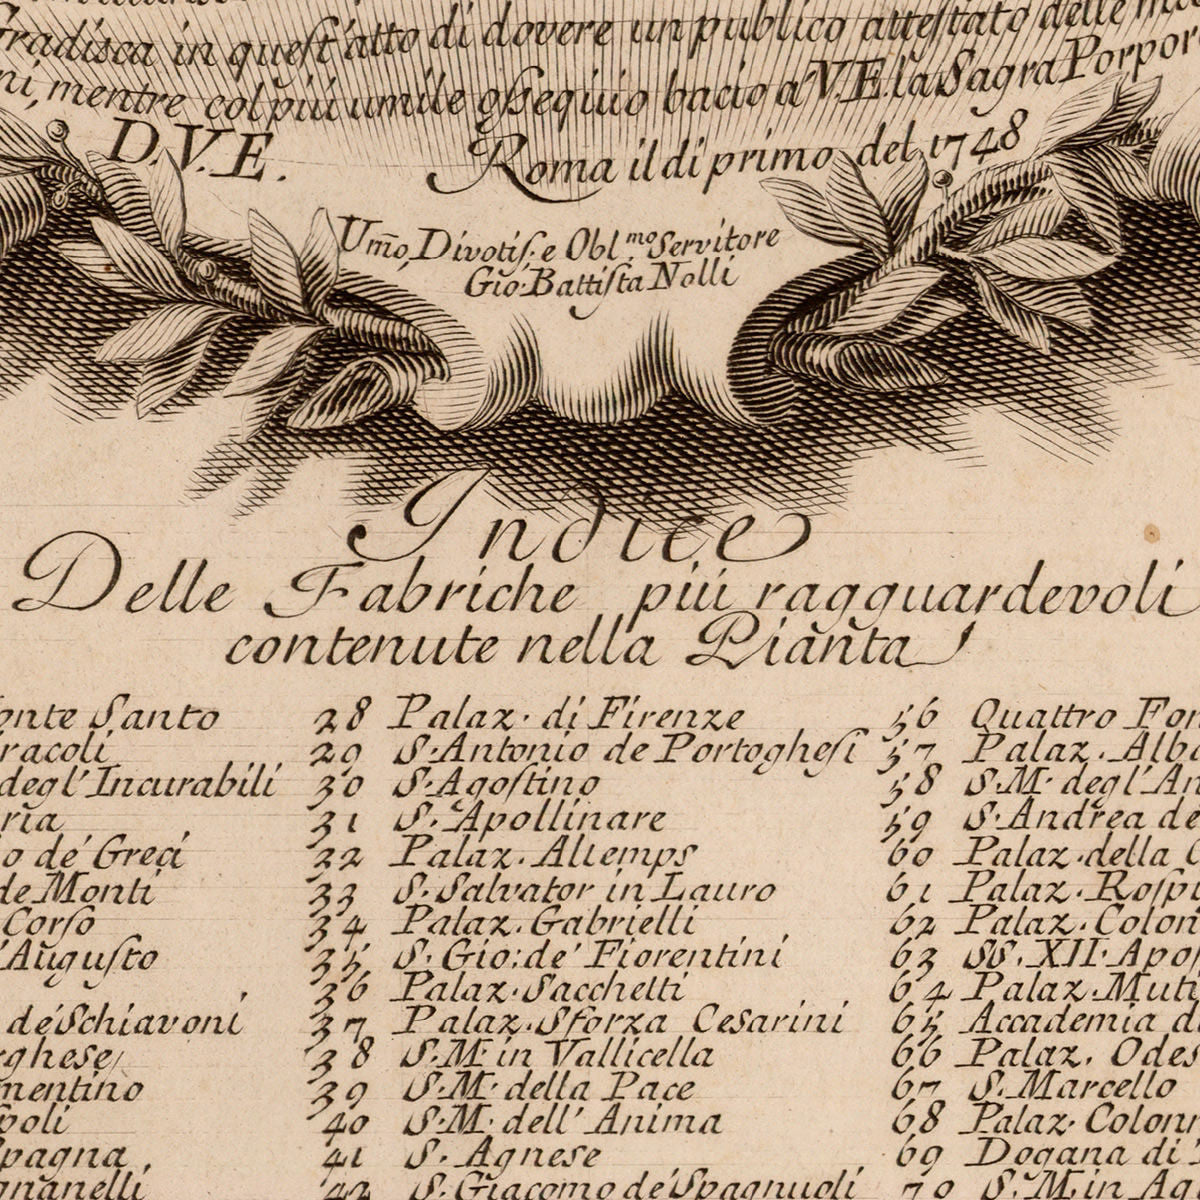 Gradisca in quest'atto di dovere un publico attestato delle
mentre col piú umile ossequio bacio a V.E. la Sagra Porpor
D.V.E.
Roma il di primo del 1748
Umo, Divotis. e Obl.mo Servitore
Gio. Battista Nolli
Indice
Delle Fabriche piú ragguardevoli
contenute nella Pianta
onte Santo
racoli
degl'Incurabili
ria
o de' Greci
de Monti
Corso
Augusto
de' Schiavoni
rghese
mentino
poli
pagna
gnanelli
28 Palaz. di Firenze
29 S. Antonio de Portoghesi
30 S. Agostino
31 S. Apollinare
32 Palaz. Altemps
33 S. Salvator in Lauro
34 Palaz. Gabrielli
35 S. Gio: de' Fiorentini
36 Palaz. Sacchetti
37 Palaz. Sforza Cesarini
38 S. M. in Vallicella
39 S. M. della Pace
40 S. M. dell' Anima
41 S. Agnese
42 S. Giacomo de' Spagnuoli
56 Quattro Fon
57 Palaz. Alba
58 S. M. degl' An
59 S. Andrea de
60 Palaz. della C
61 Palaz. Rospi
62 Palaz. Colon
63 SS. XII. Apos
64 Palaz. Muti
65 Accademia d
66 Palaz. Odes
67 S. Marcello
68 Palaz. Colonn
69 Dogana di
70 S. M. in Aq